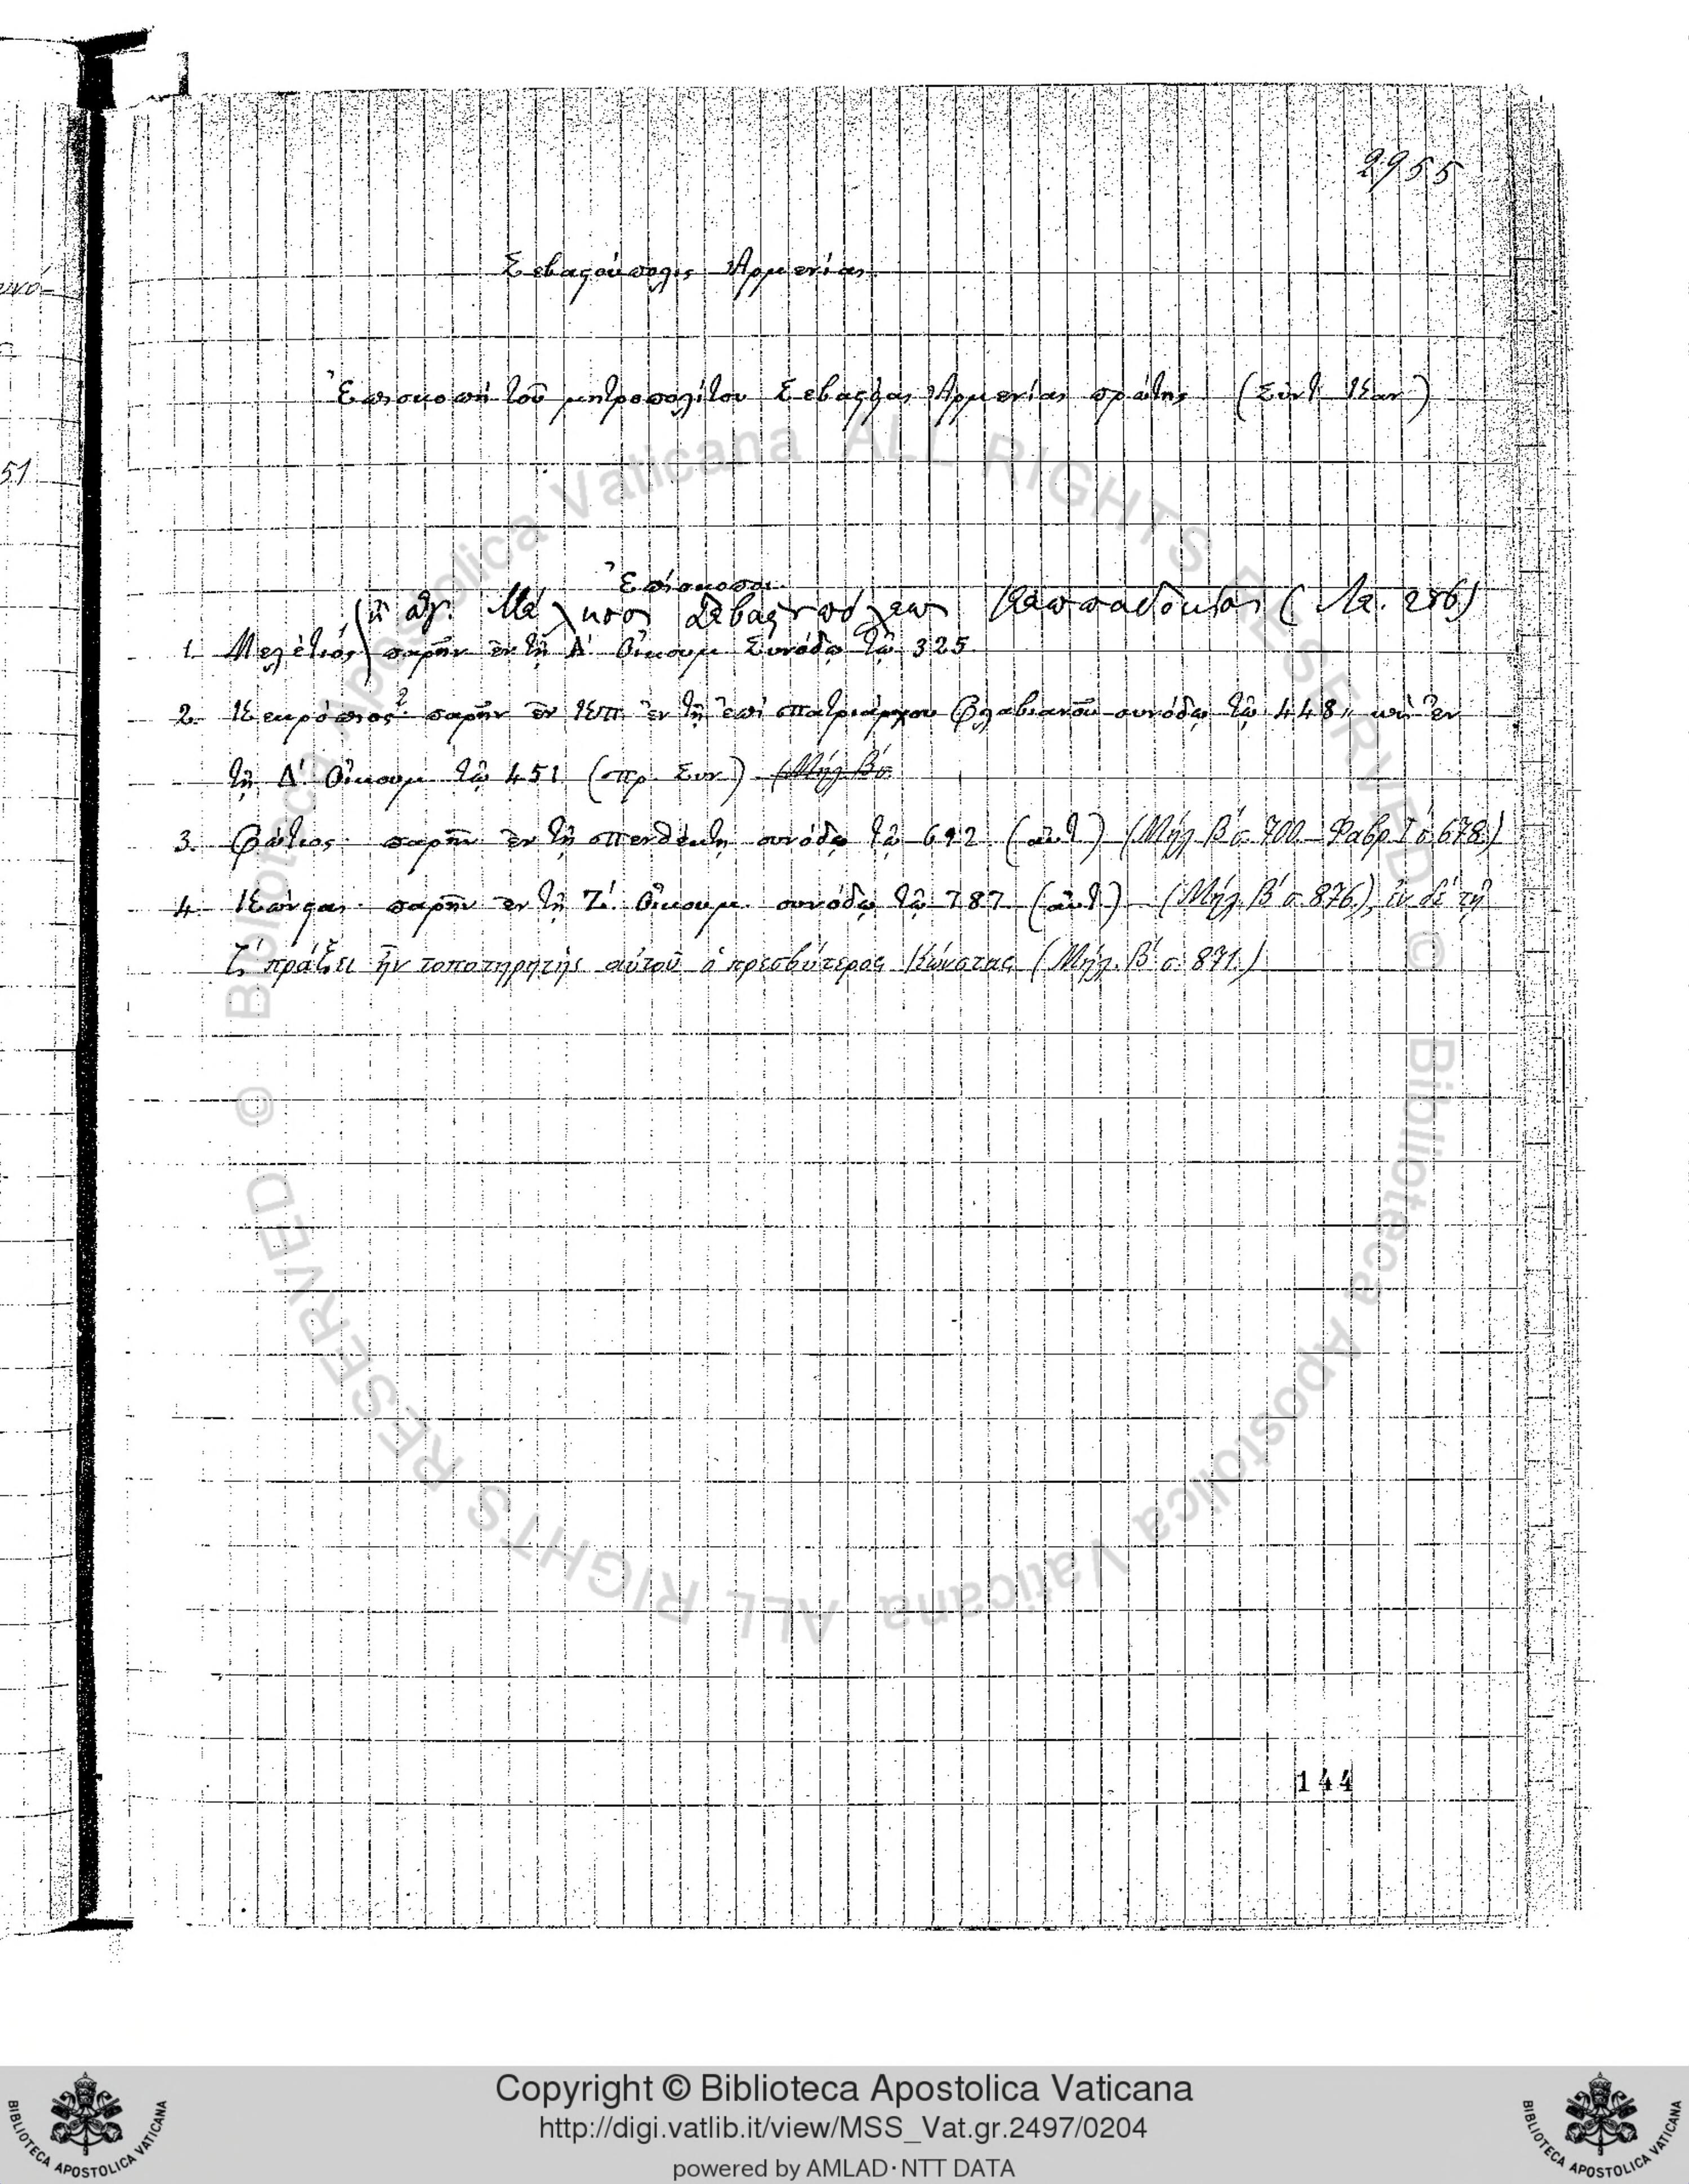 2955
Σεβαςούπολις Ἀρμενίας
Ἐπισκοπὴ τοῦ μητροπολίτου Σεβαςείας Ἀρμενίας πρώτης (Συντ. Καν)
Ἐπίσκοποι
(ἢ ἀγ. Μέλκιος Σεβαςηπόλεως Καππαδοκίας (Λε. 286)
1. Μελέτιος παρῆν ἐν τῇ Α΄. Οἰκουμ Συνόδῳ τῷ 325.
2. Κεκρόπιος· παρῆν ἐν Κπ. ἐν τῇ ἐπὶ πατριάρχου Φλαβιανοῦ συνόδῳ τῷ 448, καὶ ἐν
τῇ Δ΄ Οἰκουμ τῷ 451 (πρ. Συν) (Μήλ. Β΄ σ.
3. Φώτιος· παρῆν ἐν τῇ πενθέκτῃ συνόδῳ τῷ 692 (αὐτ) (Μήλ. Β΄ σ. 700. Φαβρ. Ι σ. 678.)
4. παρῆν ἐν τῇ Ζ΄. Οἰκουμ. συνόδῳ τῷ 787. (αὐτ) (Μήλ. Β΄ σ. 876.), ἐν δὲ τῇ
ζ΄ πράξει ἦν τοποτηρητὴς αὐτοῦ ὁ πρεσβύτερος Κώνστας (Μήλ. Β΄ σ. 871.)
51
144
© Biblioteca Apostolica Vaticana ALL RIGHTS RESERVED
© Biblioteca Apostolica Vaticana ALL RIGHTS RESERVED
Copyright © Biblioteca Apostolica Vaticana
http://digi.vatlib.it/view/MSS_Vat.gr.2497/0204
powered by AMLAD·NTT DATA
BIBLIOTECA APOSTOLICA VATICANA
BIBLIOTECA APOSTOLICA VATICANA